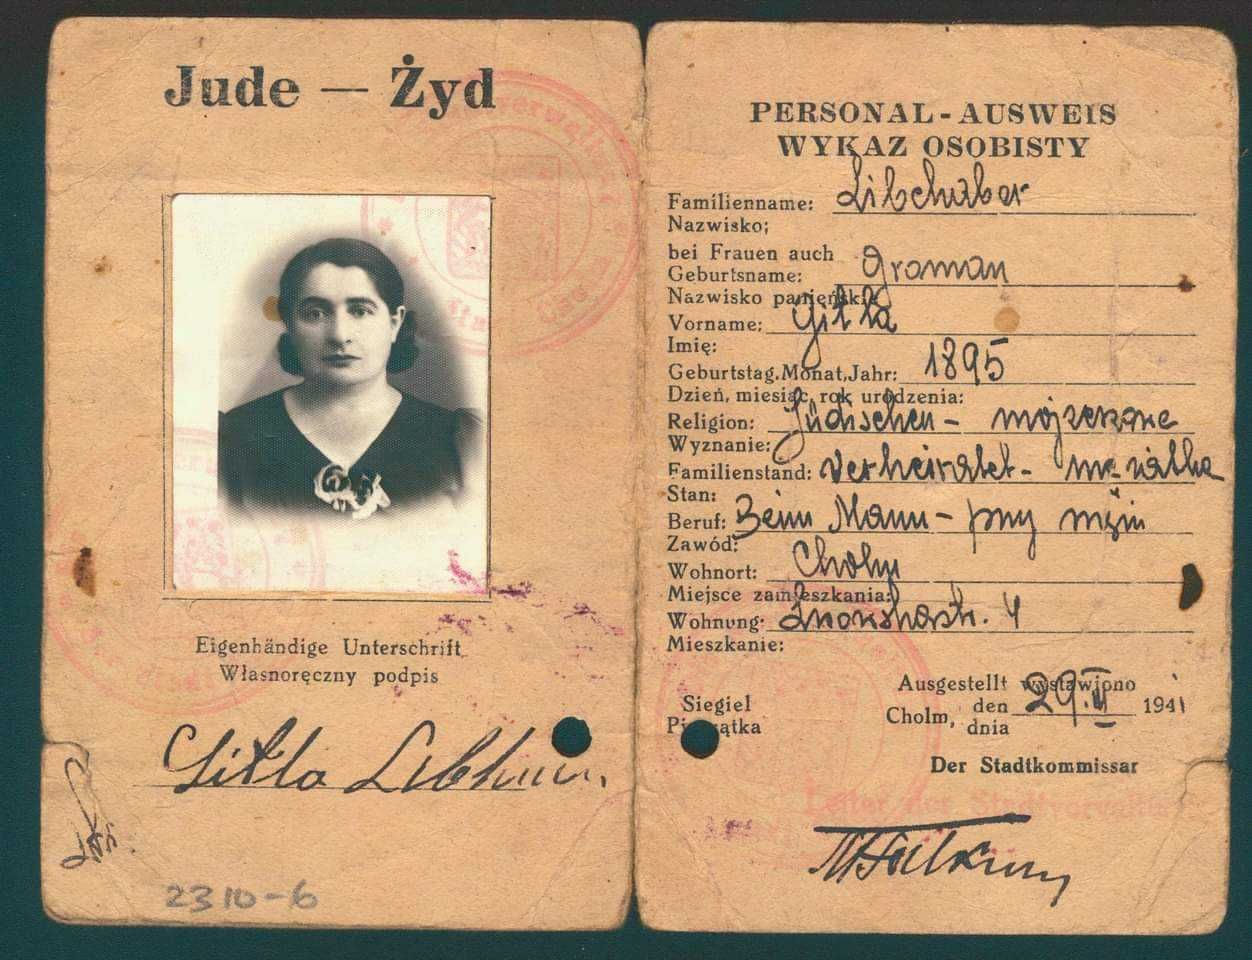 Jude — Żyd
Eigenhändige Unterschrift
Własnoręczny podpis
Gitla
2310-6
PERSONAL-AUSWEIS
WYKAZ OSOBISTY
Familienname: Libchaber
Nazwisko;
bei Frauen auch
Geburtsname: Groman
Nazwisko panieńskie
Vorname: Gitla
Imię:
Geburtstag.Monat,Jahr: 1895
Dzień, miesiąc, rok urodzenia:
Religion: Jüdischen - mojżeszowe
Wyznanie:
Familienstand: Verheiratet -
Stan:
Beruf: Beim Mann - przy mężu
Zawód:
Wohnort: Cholm
Miejsce zamieszkania:
Wohnung: 4
Mieszkanie:
Siegiel
Pieczątka
Ausgestellt wystawiono
den 29. II 1941
Cholm, dnia
Der Stadtkommissar
Leiter der Stadtverwaltung